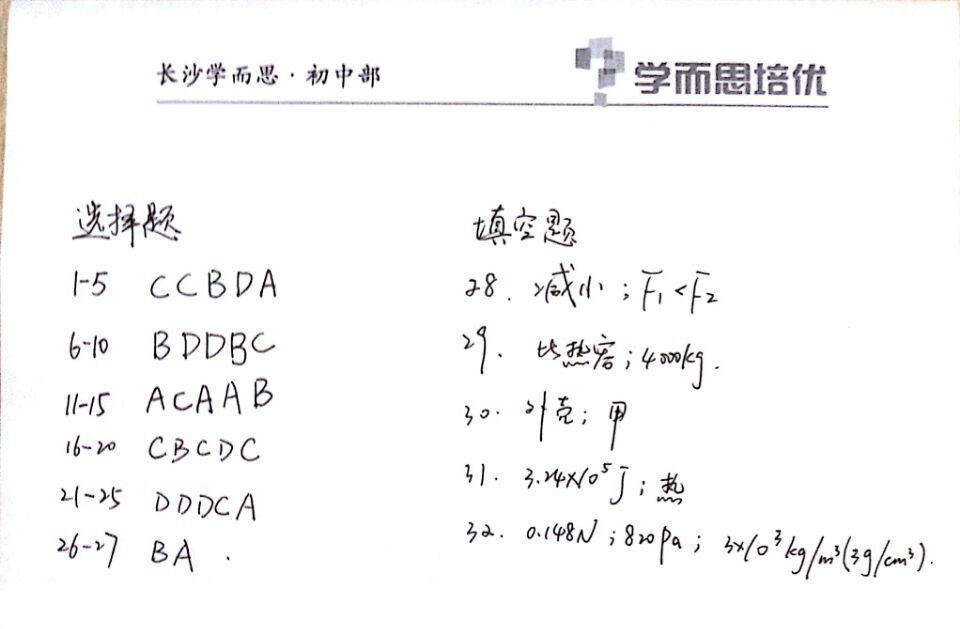 长沙学而思·初中部
学而思培优
选择题
1-5 CCBDA
6-10 BDDBC
11-15 ACAAB
16-20 CBCDC
21-25 DDDCA
26-27 BA.
填空题
28. 减小；F₁<F₂
29. 比热容；4000kg.
30. 外壳；甲
31. 3.24×10⁵J；热
32. 0.148N；820pa；3×10³kg/m³(3g/cm³).